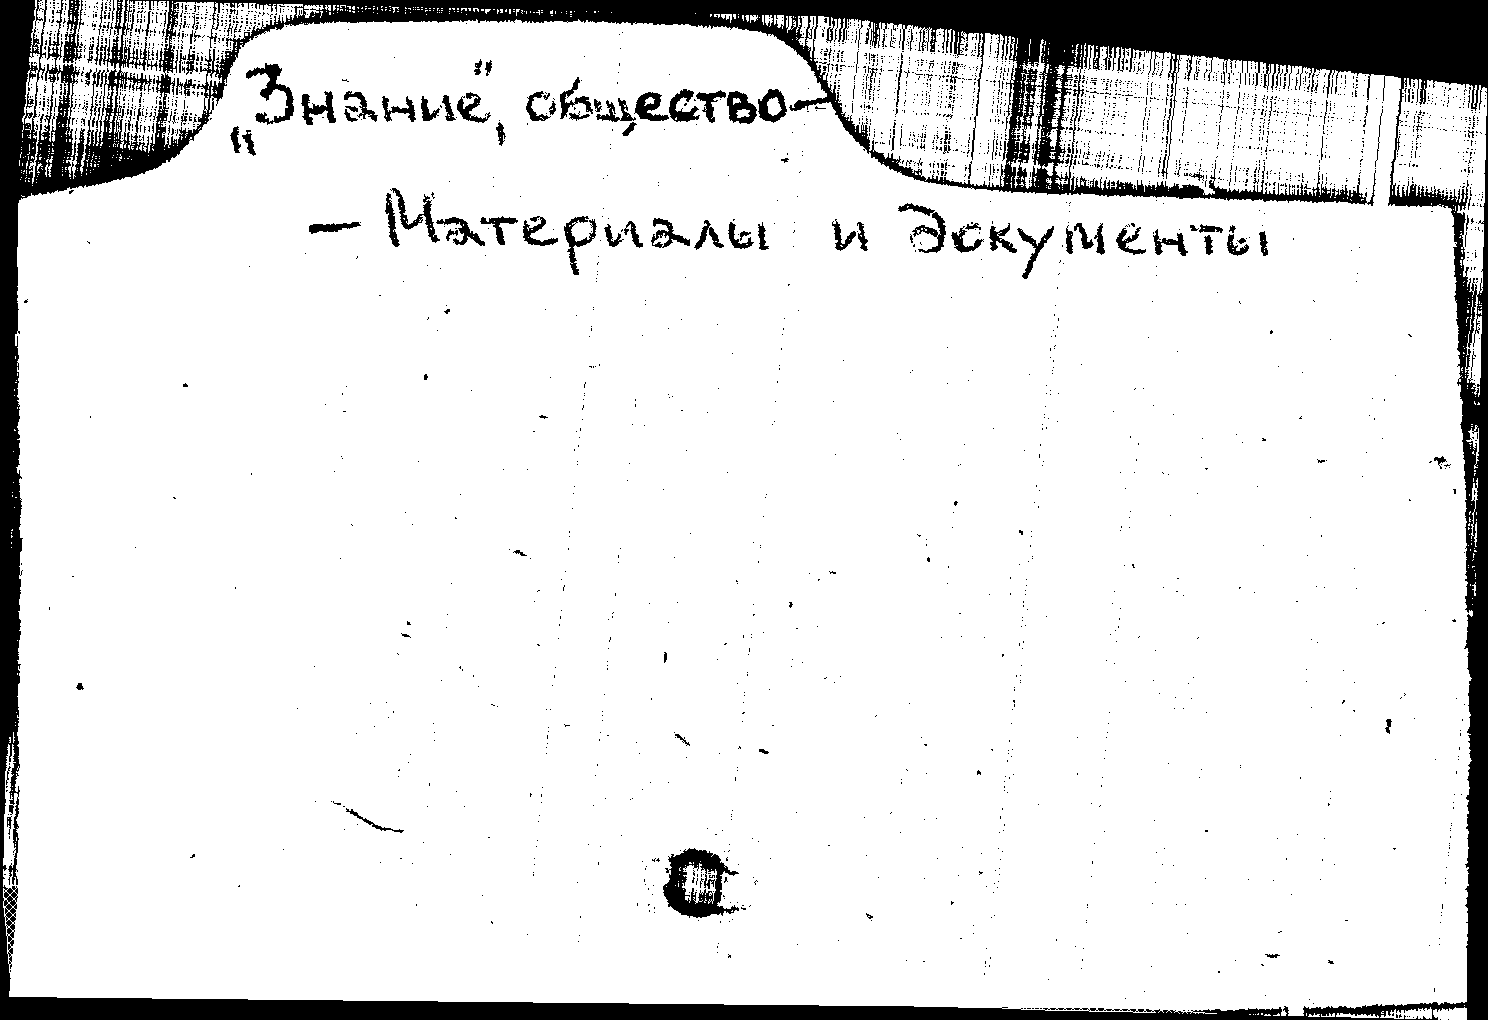 „Знание“, общество —
— Материалы и документы